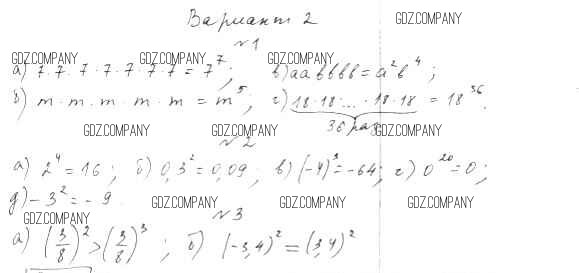 Вариант 2
GDZ.COMPANY
№1
GDZ.COMPANY GDZ.COMPANY GDZ.COMPANY
а) 7·7·7·7·7·7·7 = 7⁷; в) aabbbb = a²b⁴;
б) m·m·m·m·m = m⁵; г) 18·18·...·18·18 = 18³⁶.
36 раз
GDZ.COMPANY GDZ.COMPANY GDZ.COMPANY
№2
а) 2⁴ = 16; б) 0,3² = 0,09; в) (-4)³ = -64; г) 0²⁰ = 0;
д) -3² = -9.
GDZ.COMPANY GDZ.COMPANY GDZ.COMPANY GDZ.COMPANY
№3
а) (3/8)² > (3/8)³; б) (-3,4)² = (3,4)²